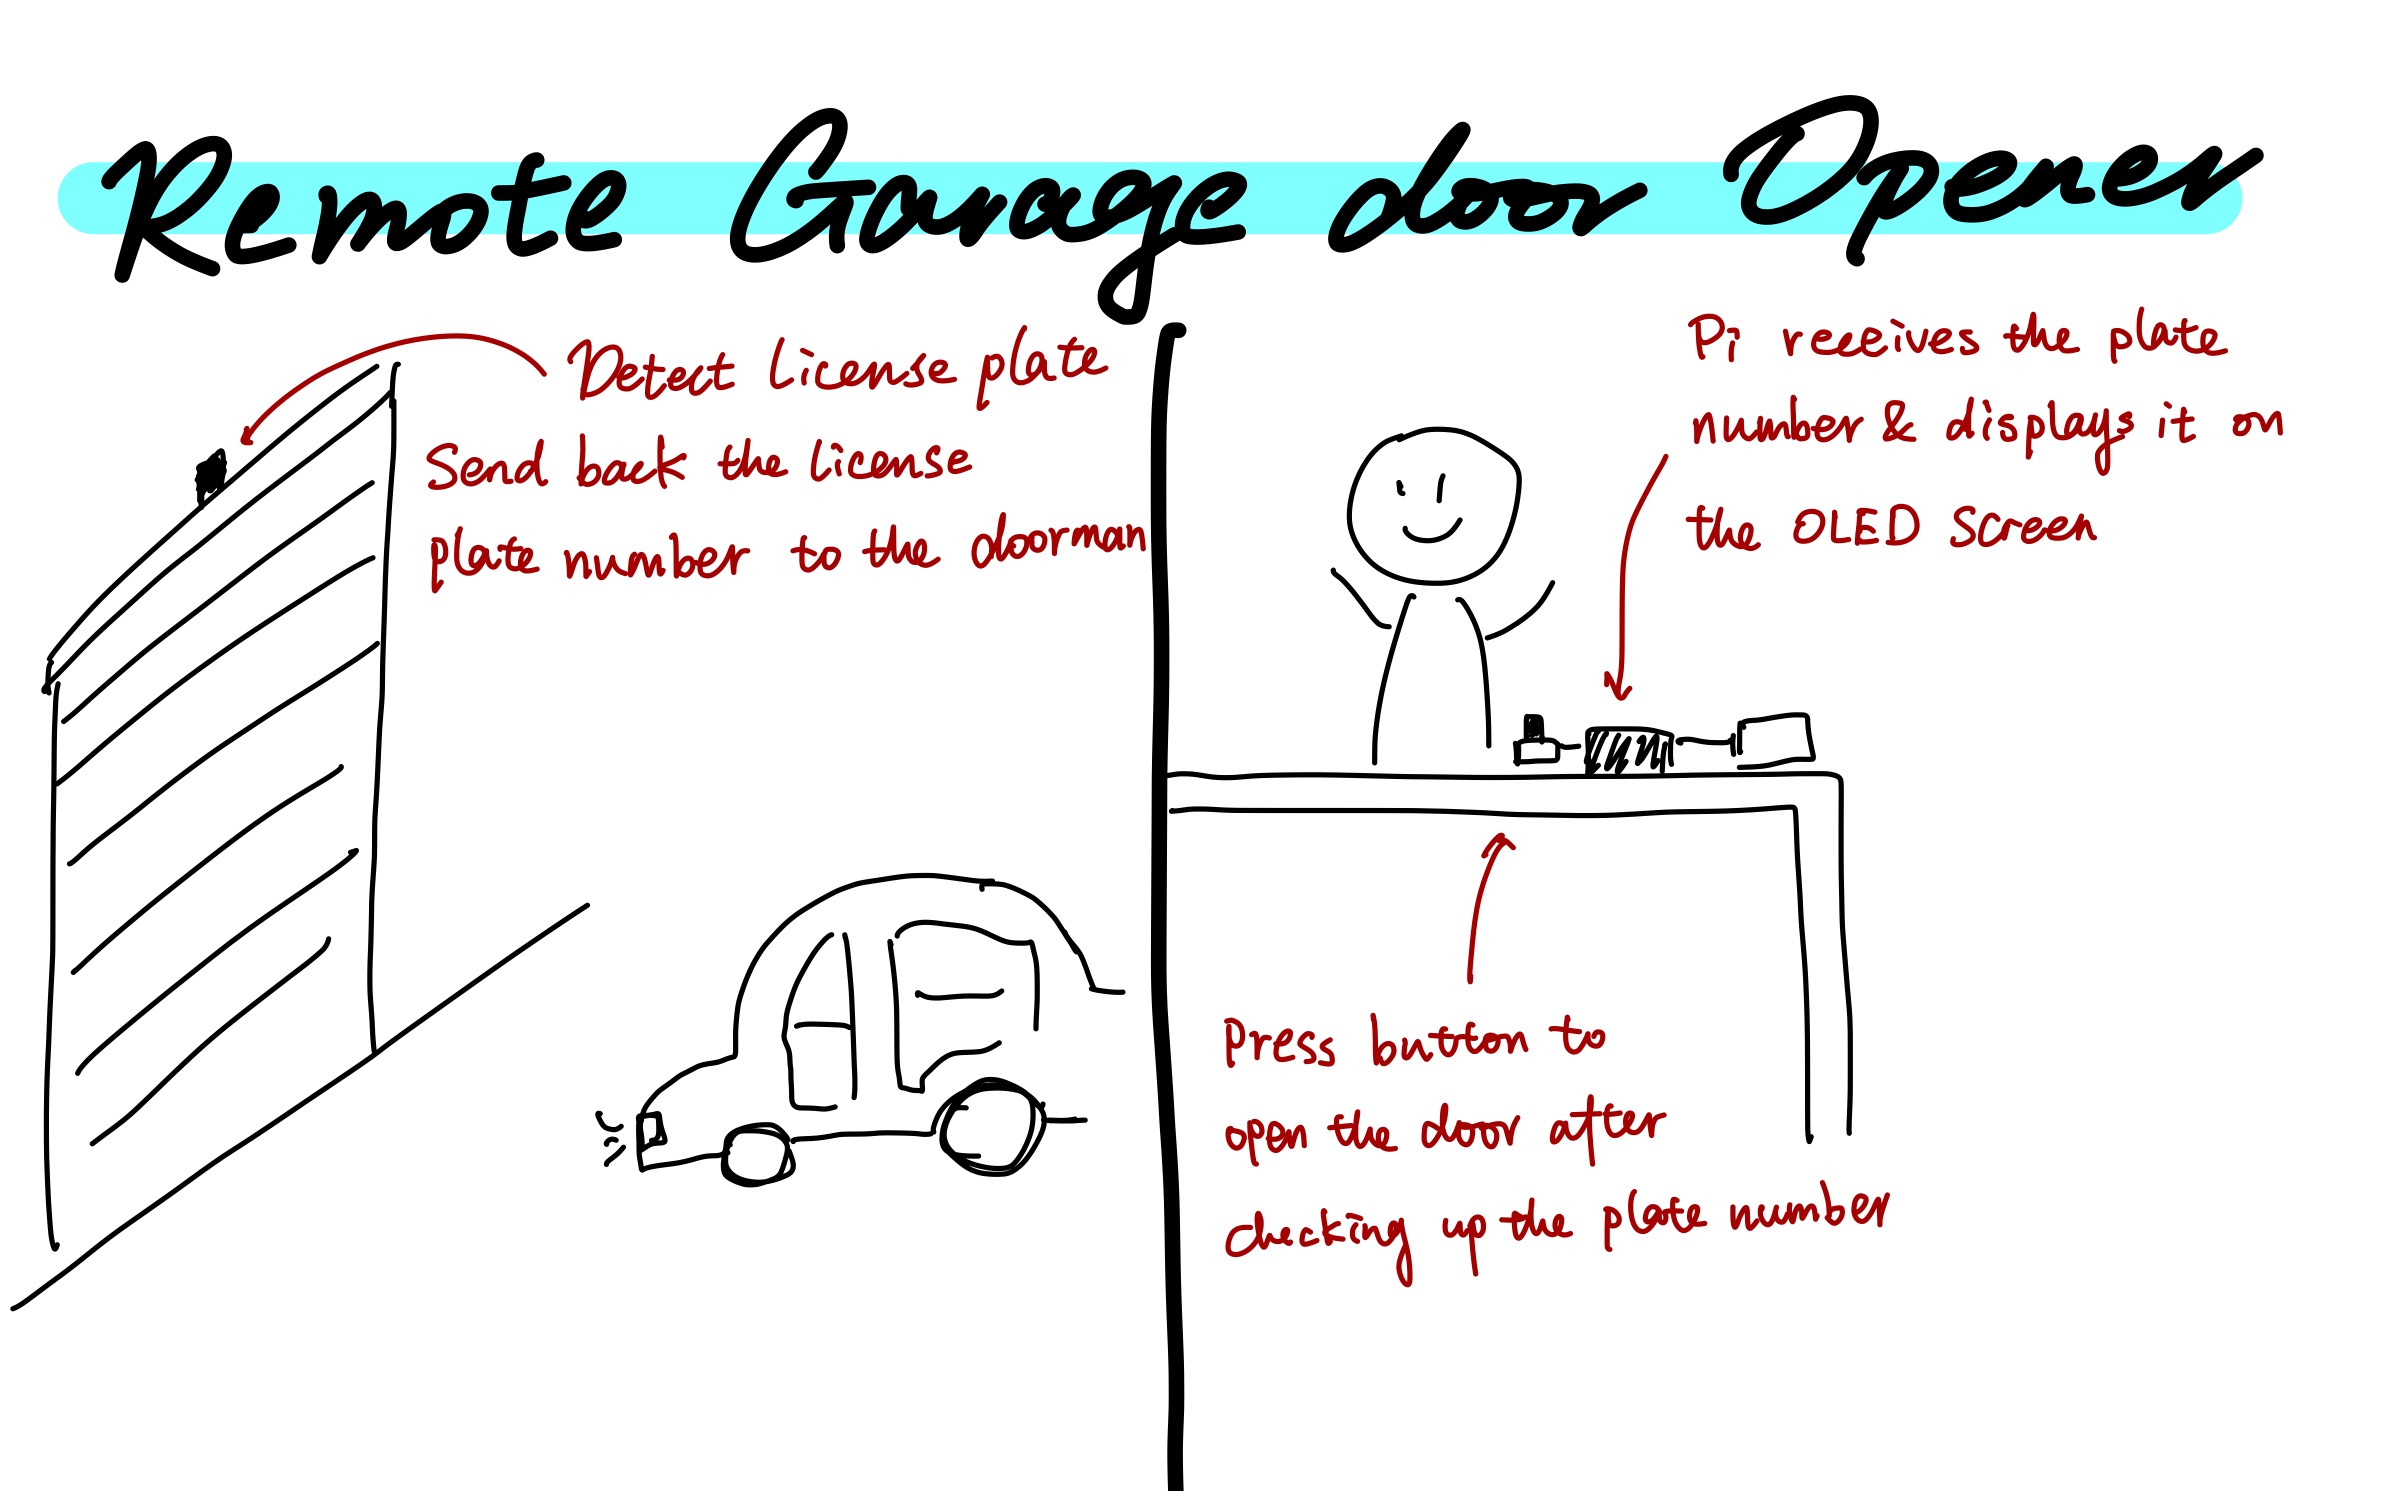 Remote Garage door Opener
Detect license plate
Send back the license
plate number to the doorman
Pi receives the plate
number & displays it on
the OLED screen
press button to
open the door after
checking up the plate number